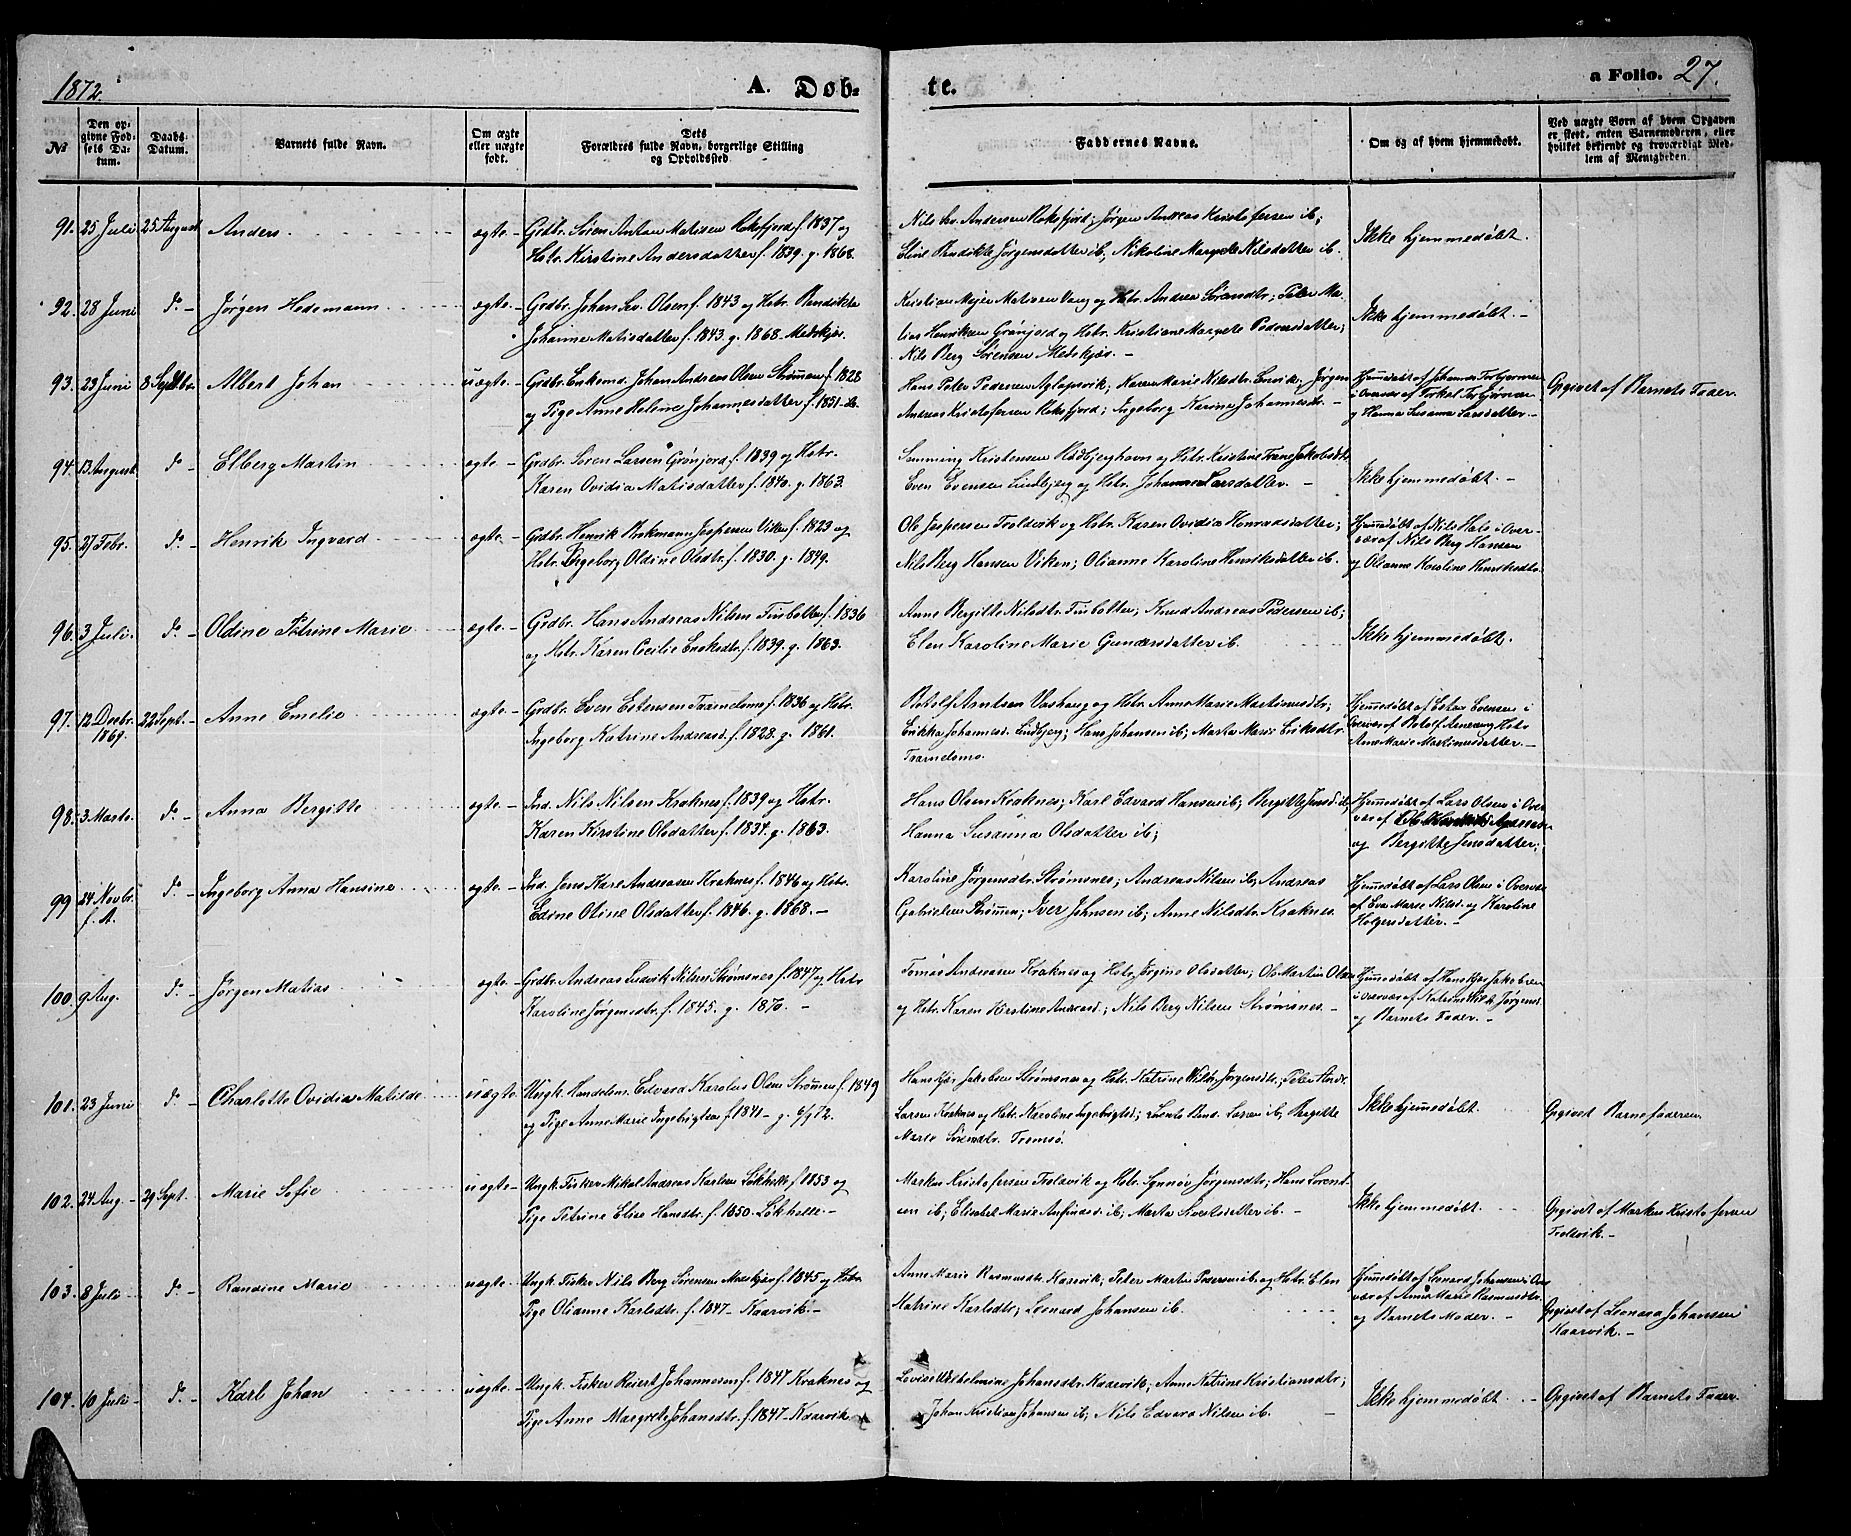 1872.
A. Døb-
te.
a Folio. 27.
No
Den op-
givne Fød-
sels Da-
tum.
Daabs-
Datum.
Barnets fulde Navn.
Om ægte
eller uægte
født.
Dets
Forældres fulde Navn, borgerlige Stilling
og Opholdssted.
Faddernes Navne.
Om og af hvem hjemmedøbt.
Ved uægte Børn af hvem Opgaven
er skeet, enten Barnemoderen, eller
hvilket bekjendt og troværdigt Med-
lem af Menigheden.
91. 25 Juli 25 August Anders ægte. Grdbr. Søren Anton Matisen Rekfjord f. 1837 og
Hstr. Kirstine Andersdatter f. 1839. g. 1868.
Nils Sev. Andersen Rekfjord; Jørgen Andreas Kristofersen ib;
Eline Bendikte Jørgensdatter ib; Nikoline Margrete Nilsdatter ib.
Ikke hjemmedøbt.
92. 28 Juni do Jørgen Hedemann ægte. Grdbr. Johan Sev. Olsen f. 1843 og Hstr. Bendikte
Johanne Matisdatter f. 1843. g. 1868. Meeskjær.
Kristian Mejer Matisen Vang og Hstr. Andrea Sørensdtr; Peter Ma-
tias Henriksen Grønjord og Hstr. Kristiane Margrete Pedersdatter;
Nils Berg Sørensen Meeskjær.
Ikke hjemmedøbt.
93. 23 Juni 8 Septbr. Albert Johan uægte. Grdbr. Enkemd. Johan Andreas Olsen Strømmen f. 1828
og Pige Anne Heline Johannesdatter f. 1851 ib.
Hans Peter Pedersen Aglapsvik; Karen Marie Nilsdtr. Lervik; Jørgen
Andreas Kristofersen Rekfjord; Ingeborg Karine Johannesdtr.
Hjemmedøbt af Johannes Torbjørnsen
i Overvær af Torkel Torbjørnsen
og Hanna Susanna Larsdatter.
Opgivet af Barnets Fader.
94. 13 August do Elberg Martin ægte. Grdbr. Søren Larsen Grønjord f. 1839 og Hstr.
Karen Ovidia Matisdatter f. 1840. g. 1863.
Semming Kristensen Rødbjerghavn og Hstr. Kristine Trane Jakobsdtr.
Even Evensen Lindbjerg og Hstr. Johanna Larsdatter.
Ikke hjemmedøbt.
95. 27 Febr. do Henrik Ingvard ægte. Grdbr. Henrik Brekmann Jespersen Viken f. 1823 og
Hstr. Ingeborg Oldine Olsdtr. f. 1830. g. 1849.
Ole Jespersen Troldvik og Hstr. Karen Ovidia Konradsdatter;
Nils Berg Hansen Viken; Olianne Karoline Henriksdatter ib.
Hjemmedøbt af Nils Hals i Over-
vær af Nils Berg Hansen
og Olianne Karoline Henriksdtr.
96. 3 Juli. do Oldine Petrine Marie ægte Grdbr. Hans Andreas Nilsen Tinbolten f. 1836
og Hstr. Karen Cecilie Enoksdtr. f. 1839. g. 1863.
Anne Bergitte Nilsdtr. Tinbolten; Knud Andreas Pedersen ib;
Elen Karoline Marie Gundersdatter ib.
Ikke hjemmedøbt.
97. 12 Decbr. 1869. 22 Sept. Anne Emelie ægte. Grdbr. Even Estensen Traneelsmo f. 1836 og Hstr.
Ingeborg Katrine Andreasd. f. 1828. g. 1861.
Botolf Arntsen Vashaug og Hstr. Anne Marie Martinusdtr;
Erikka Johannesd. Lindbjerg; Hans Johansen ib; Marta Marie Eriksdtr.
Traneelsmo.
Hjemmedøbt af Esten Evensen i
Overvær af Botolf Arntsen og Hstr.
Anne Marie Martinusdatter.
98. 3. Marts. do Anna Bergitte ægte. Ind. Nils Nilsen Kraknes f. 1839 og Hstr.
Karen Kirstine Olsdatter f. 1834. g. 1863.
Hans Olsen Kraknes; Karl Edvard Hansen ib; Bergitte Jensd. ib;
Hanna Susanna Olsdatter ib;
Hjemmedøbt af Lars Olsen i Over-
vær af Andreasen
og Bergitte Jensdatter;
99. 24 Novbr. f. A. do Ingeborg Anna Hansine ægte. Ind. Jens Kare Andreasen Kraknes f. 1846 og Hstr.
Edine Oline Olsdatter f. 1846. g. 1868.
Karoline Jørgensdtr. Strømsnes; Andreas Nilsen ib; Andreas
Gabrielsen Strømmen; Iver Johnsen ib; Anne Nilsdtr. Kraknes.
Hjemmedøbt af Lars Olsen i Overvær
af Eva Marie Nilsd. og Karoline
Holgersdatter.
100. 9 Aug. do Jørgen Matias ægte. Grdbr. Andreas Ludvik Nilsen Strømsnes f. 1847 og Hstr.
Karoline Jørgensdtr. f. 1845. g. 1870.
Tomas Andreasen Kraknes og Hstr. Jørgine Olsdatter; Ole Martin Olsen
og Hstr. Karen Kirstine Andreasd; Nils Berg Nilsen Strømsnes.
Hjemmedøbt af Hans Kjær Jakobsen
i Overvær af Katrine Wilh. Jørgensd.
og Barnets Fader.
101. 23 Juni do Charlotte Ovidia Matilde uægte. Ungk. Handelsm. Edvard Karolus Olsen Strømmen f. 1849
og Pige Anne Marie Ingebrigtsen f. 1841 - g. 6/9 72.
Hans Kjær Jakobsen Strømsnes og Hstr. Katrine Wilh. Jørgensdtr; Peter Andr.
Larsen Kraknes og Hstr. Karoline Ingebrigtsd; Lents Bend. Larsen ib; Bergitte
Marie Sørensdtr. Tromsø.
Ikke hjemmedøbt.
Opgivet Barnefaderen
102. 24 Aug. 29 Sept. Marie Sofie uægte. Ungk. Fisker Mikal Andreas Karlsen Løkhelle f. 1853 og
Pige Petrine Elise Hansdtr. f. 1850. Løkhelle.
Markus Kristofersen Trolvik og Hstr. Synnøv Jørgensdtr; Hans Lorents-
sen ib; Elisabet Marie Anfindsd. ib; Marta Sivertsdatter ib.
Ikke hjemmedøbt.
Opgivet af Markus Kristofersen
Trolvik.
103. 8 Juli do Randine Marie uægte. Ungk. Fisker Nils Berg Sørensen Meeskjær f. 1845 og Hstr.
Pige Olianne Karlsdtr. f. 1847 - Kaarvik.
Anne Marie Rasmusdtr. Kaarvik; Peter Martin Pedersen ib. og Hstr. Elen
Katrine Karlsdtr; Leonard Johansen ib.
Hjemmedøbt af Leonard Johansen i Over-
vær af Anne Marie Rasmusdtr.
og Barnets Moder.
Opgivet af Leonard Johansen
Kaarvik.
104. 10 Juli do Karl Johan uægte. Ungk. Fisker Reiert Johannesen f. 1847 Kraknes og
Pige Anne Margrete Johansdtr. f. 1847 - Kaarvik
Lovise Wilhelmine Johansdtr. Kaarvik; Anne Katrine Kristiansdtr;
Johan Kristian Johansen ib; Nils Edvard Nilsen ib.
Ikke hjemmedøbt.
Opgivet af Barnets Fader.